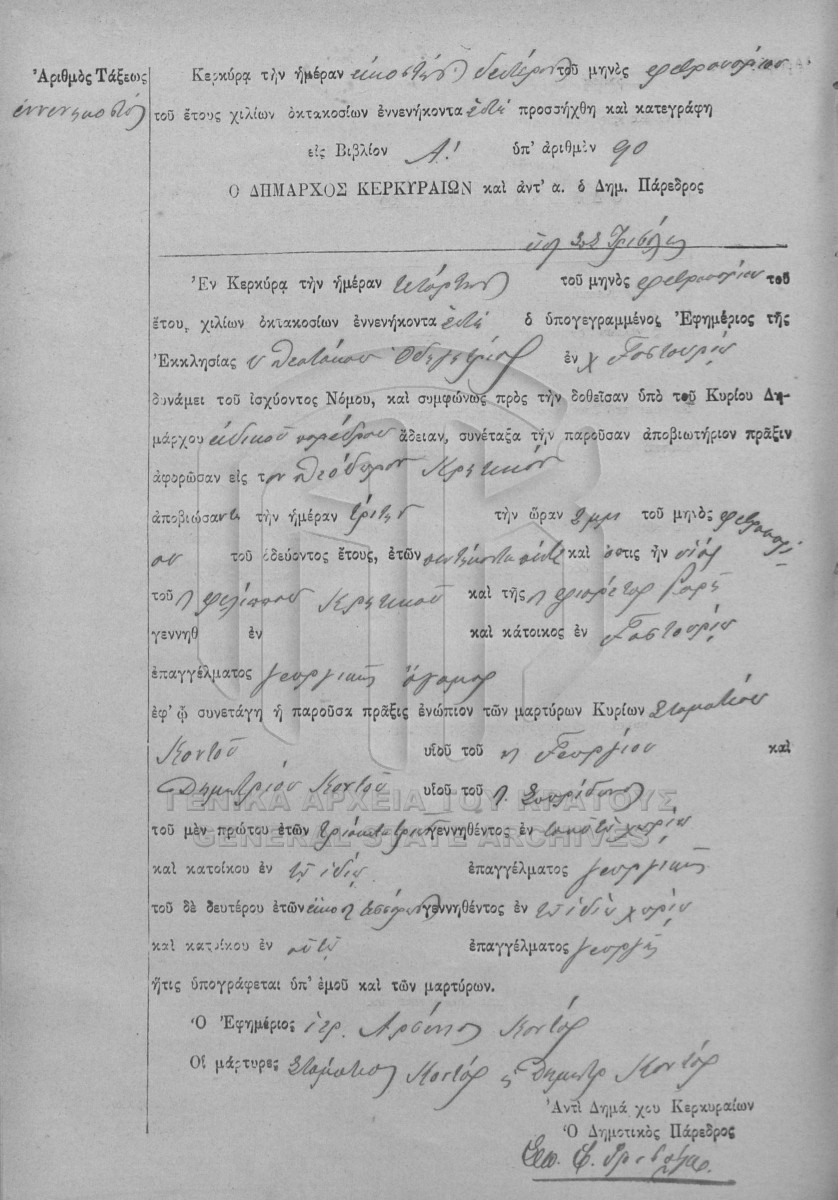 Ἀριθμὸς Τάξεως
ἐννενηκοστός
Κερκύρᾳ τὴν ἡμέραν εἰκοστὴν δευτέραν τοῦ μηνὸς Φεβρουαρίου
τοῦ ἔτους χιλίων ὀκτακοσίων ἐννενήκοντα ἑπτὰ προσσήχθη καὶ κατεγράφη
εἰς Βιβλίον Α! ὑπ' ἀριθμὸν 90
Ο ΔΗΜΑΡΧΟΣ ΚΕΡΚΥΡΑΙΩΝ καὶ ἀντ' α. ὁ Δημ. Πάρεδρος
Ἐν Κερκύρᾳ τὴν ἡμέραν τετάρτην τοῦ μηνὸς Φεβρουαρίου τοῦ
ἔτους χιλίων ὀκτακοσίων ἐννενήκοντα ἑπτὰ ὁ ὑπογεγραμμένος Ἐφημέριος τῆς
Ἐκκλησίας Θεοτόκου Ὁδηγητρίας ἐν χ Γαστουρίῳ
δυνάμει τοῦ ἰσχύοντος Νόμου, καὶ συμφώνως πρὸς τὴν δοθεῖσαν ὑπὸ τοῦ Κυρίου Δη-
μάρχου εἰδικοῦ παρέδρου ἄδειαν, συνέταξα τὴν παροῦσαν ἀποβιωτήριον πρᾶξιν
ἀφορῶσαν εἰς τον Θεόδωρον Κρητικόν
ἀποβιώσαντα τὴν ἡμέραν τρίτην τὴν ὥραν 2 μμ τοῦ μηνὸς Φεβρουαρί
ου τοῦ ὁδεύοντος ἔτους, ἐτῶν πεντήκοντα πέντε καὶ ὅστις ἦν υἱός
τοῦ π Φιλίππου Κρητικοῦ καὶ τῆς π
γεννηθ ἐν καὶ κάτοικος ἐν Γαστουρίῳ
ἐπαγγέλματος γεωργικῆς ἄγαμος
ἐφ' ᾧ συνετάγη ἡ παροῦσα πρᾶξις ἐνώπιον τῶν μαρτύρων Κυρίων Σταματίου
Κοντοῦ υἱοῦ τοῦ π Γεωργίου καὶ
Δημητρίου Κοντοῦ υἱοῦ τοῦ π. Σπυρίδωνος
ΓΕΝΙΚΑ ΑΡΧΕΙΑ ΤΟΥ ΚΡΑΤΟΥΣ
τοῦ μὲν πρώτου ἐτῶν τριάκοντα τριῶν γεννηθέντος ἐν χωρίῳ
GENERAL STATE ARCHIVES
καὶ κατοίκου ἐν τῷ ἰδίῳ ἐπαγγέλματος γεωργικῆς
τοῦ δὲ δευτέρου ἐτῶν εἴκοσι τεσσάρων γεννηθέντος ἐν τῷ ἰδίῳ χωρίῳ
καὶ κατοίκου ἐν αὐτῷ ἐπαγγέλματος γεωργικῆς
ἥτις ὑπογράφεται ὑπ' ἐμοῦ καὶ τῶν μαρτύρων.
Ὁ Ἐφημέριος ἱερ. Ἀρσένιος Κοντός
Οἱ μάρτυρες Σταμάτιος Κοντός Δημητρ Κοντός
Ἀντὶ Δημάρχου Κερκυραίων
Ὁ Δημοτικὸς Πάρεδρος